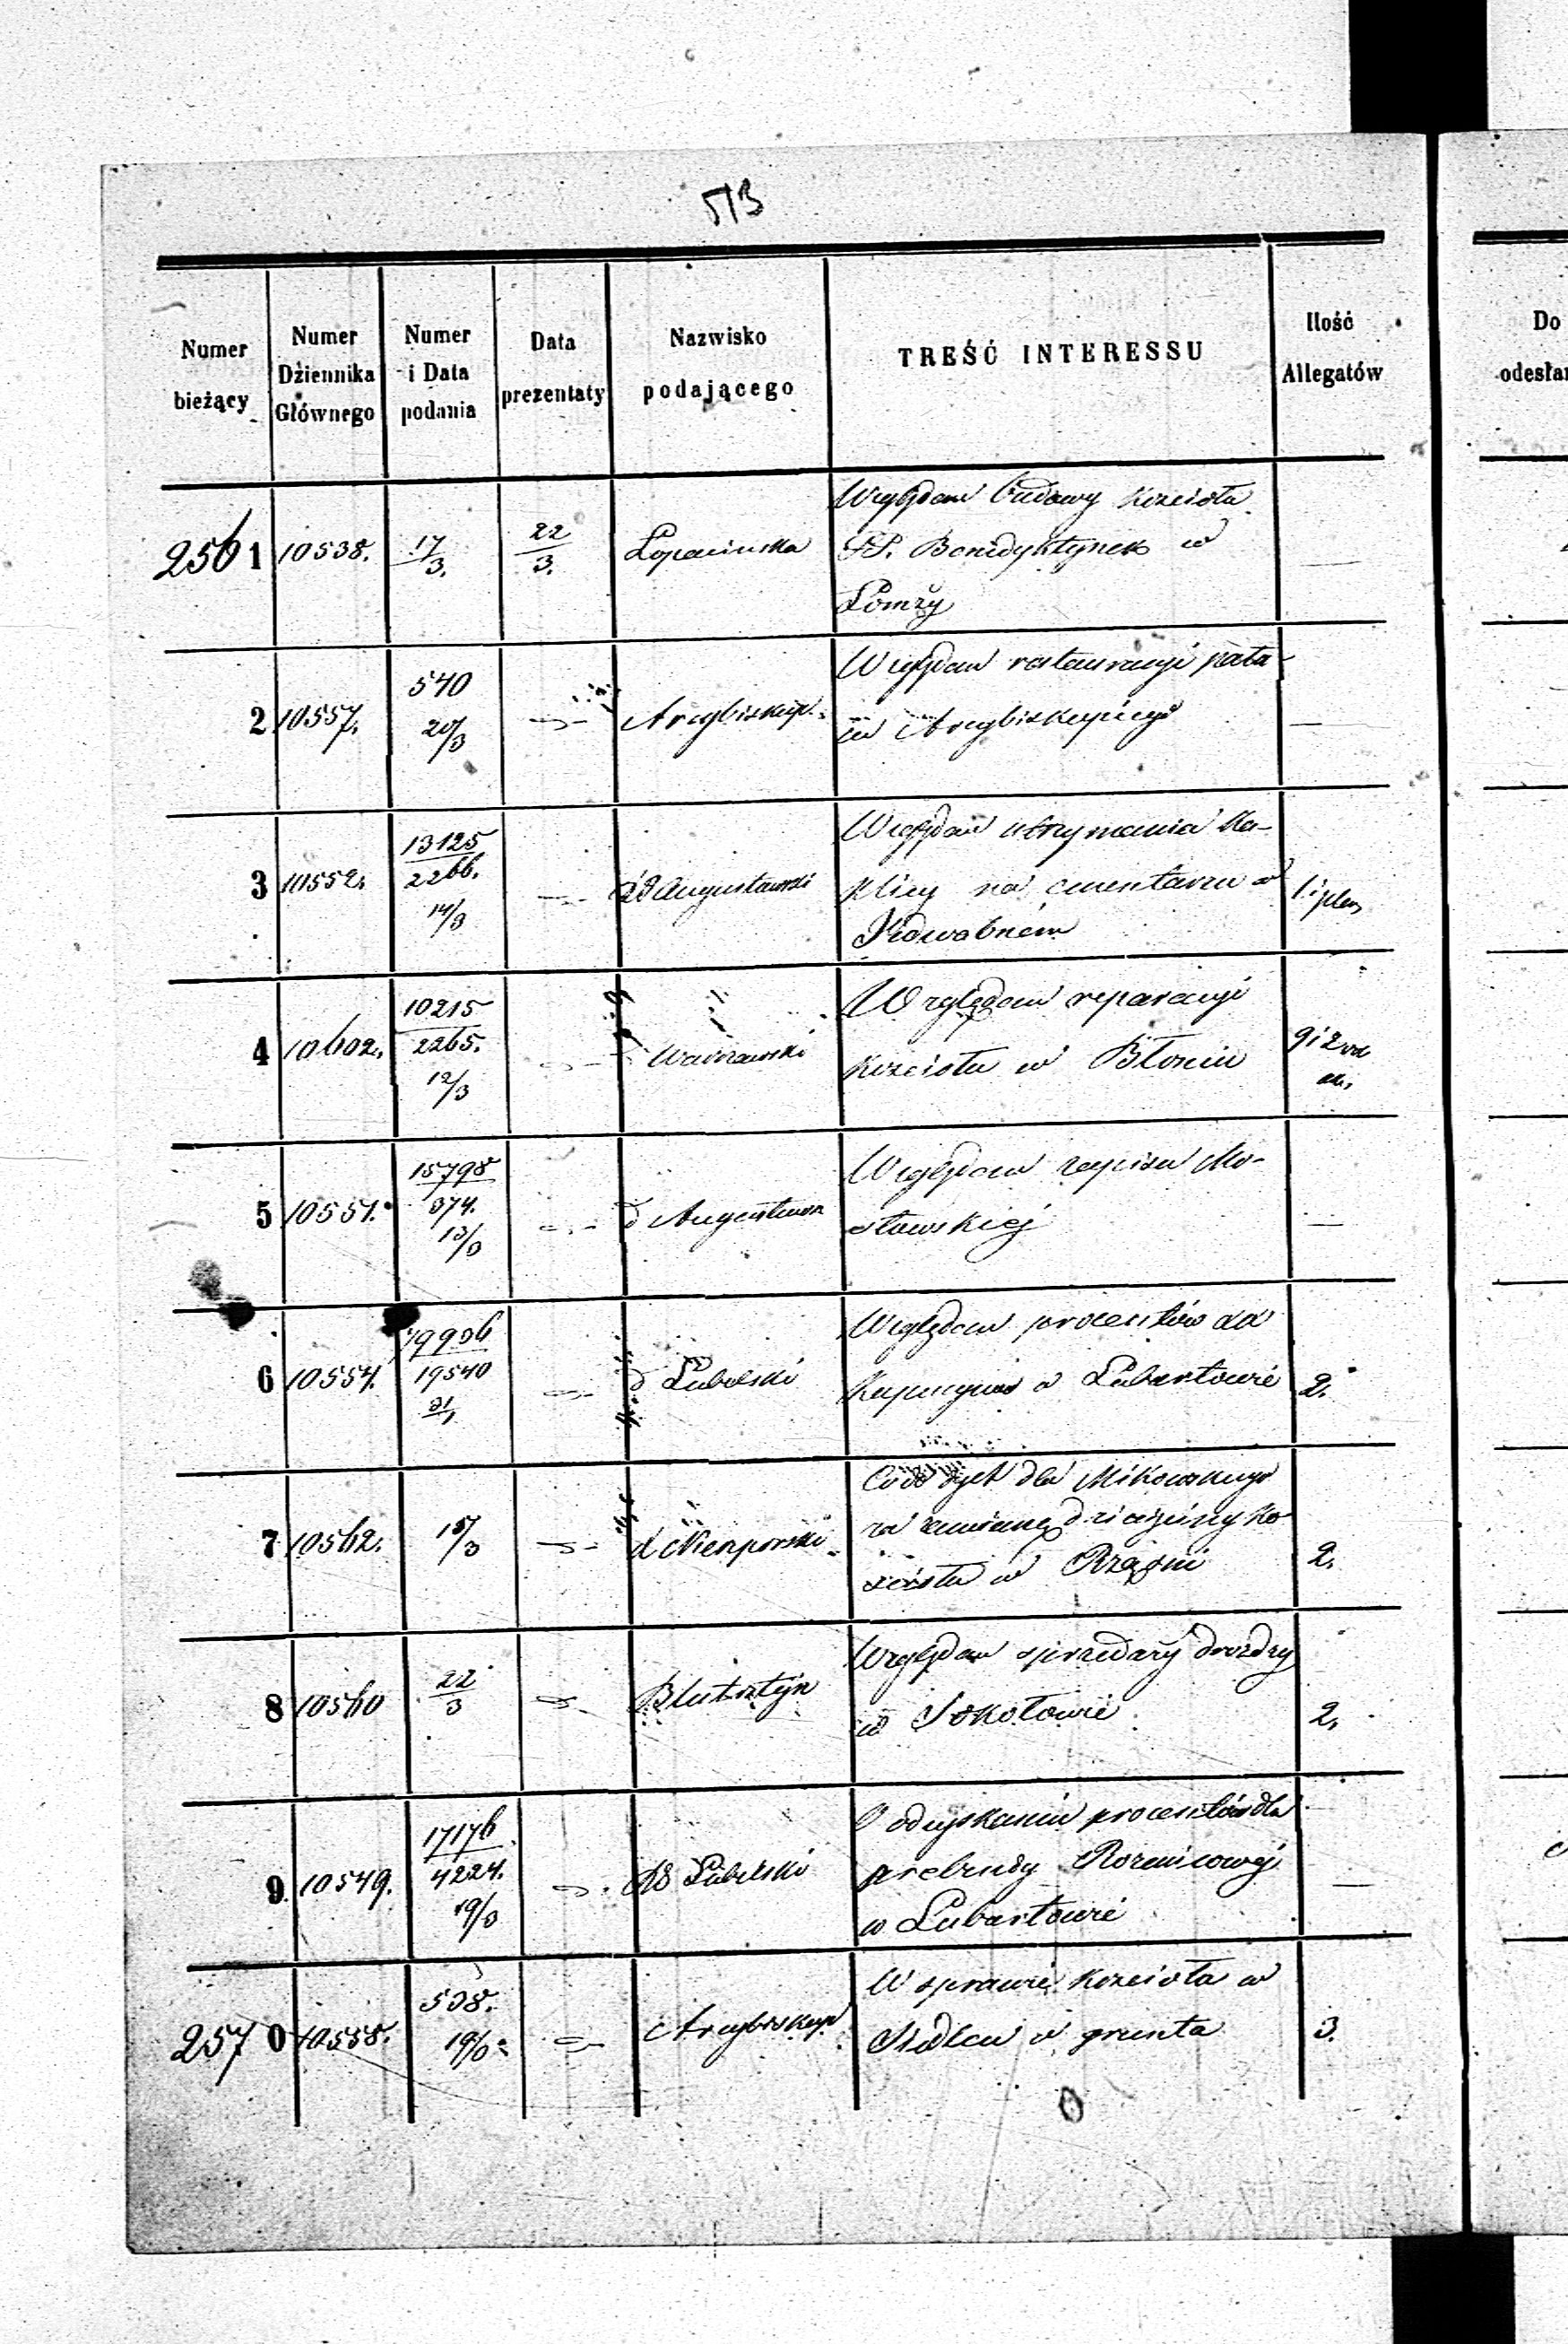 513
Numer bieżący
Numer Dziennika Głównego
Numer i Data podania
Data prezentaty
Nazwisko podającego
TREŚĆ INTERESSU
Ilość Allegatów
Do
odesła
2561 10538. 17/3. 22/3. Łopacińska
Względem budowy kościoła
PP. Benedyktynek w
Łomży
—
2 10557. 540 20/3 Arcybiskup.
Względem restauracyi pała-
cu Arcybiskupiego
—
3 10552. 13125 2266. 14/3 Augustowski
Względem utrzymania ka-
plicy na cmentarzu w
Jedwabném
1 i plan
4 10602. 10215 2265. 12/3 Warszawski
Względem reparacyi
kościoła w Błoniu
9 i 2
5 10551. 15798 374. 13/3 d Augustowsk
Względem zapisu Mo-
sławskiej
—
6 10554. 19540 21/1 d Lubelski
Względem procentów dla
Kapucynów w Lubartowie
2.
7 10562. 15/3
dyet dla Mikowskiego
za
w Rząśni
2.
8 10560 22/3 Blutsztejn
Względem sprzedaży drożdży
w Sokołowie
2.
9 10549. 17176 4224. 19/3 Lubelski
O odzyskaniu procentów dla
prebendy Rożańcowej
w Lubartowie
—
2570 10558. 538. 19/3 Arcybiskup
W sprawie kościoła w
Siedlcu o grunta
3.